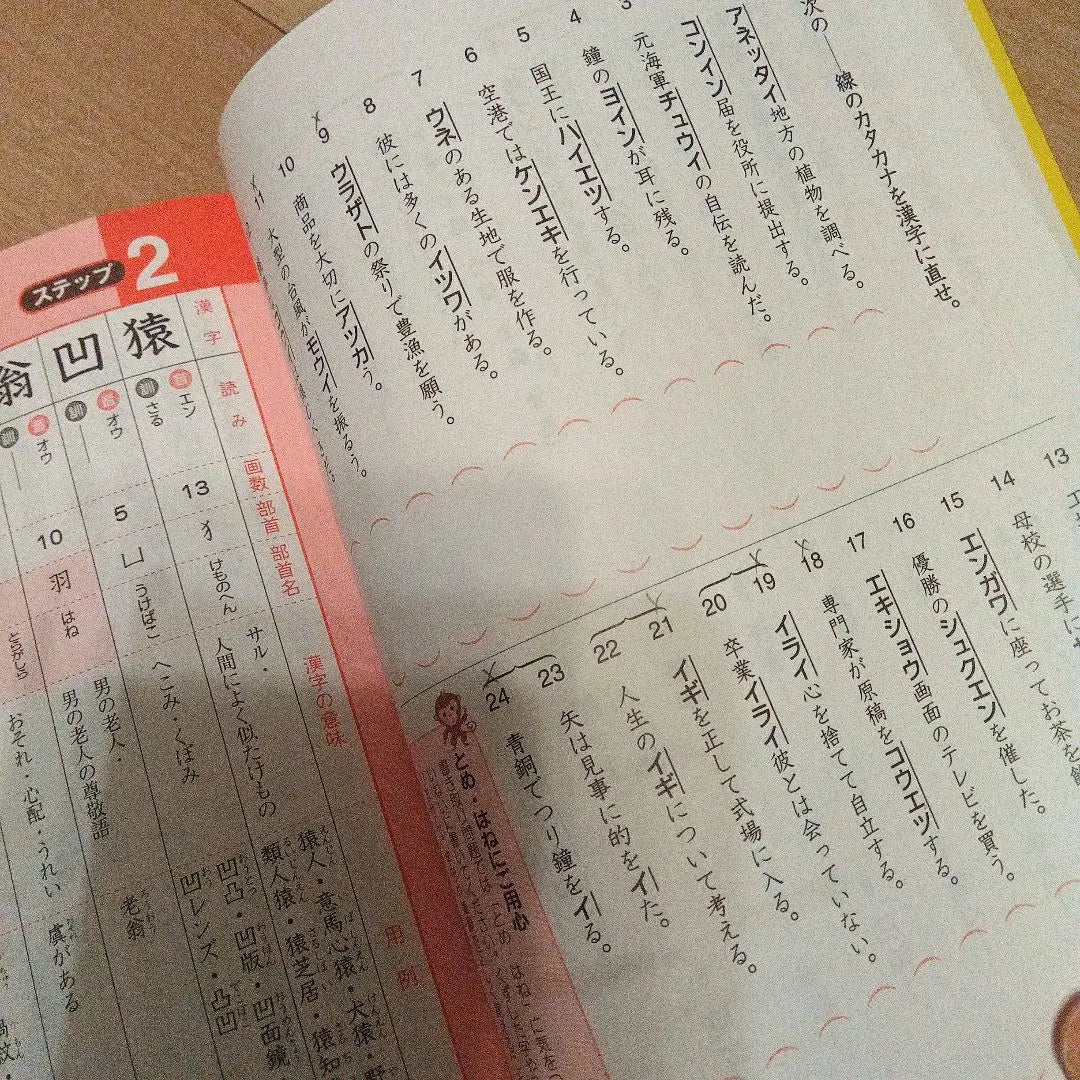 次の――線のカタカナを漢字に直せ。
アネッタイ地方の植物を調べる。
コンイン届を役所に提出する。
3 元海軍チュウイの自伝を読んだ。
4 鐘のヨインが耳に残る。
5 国王にハイエツする。
6 空港ではケンエキを行っている。
7 ウネのある生地で服を作る。
8 彼には多くのイツワがある。
9 ウラザトの祭りで豊漁を願う。
10 商品を大切にアツカう。
11 大型の台風がモウイを振るう。
13 エ
14 母校の選手に
15 エンガワに座ってお茶を
16 優勝のシュクエンを催した。
17 エキショウ画面のテレビを買う。
18 専門家が原稿をコウエツする。
19 イライ心を捨てて自立する。
20 卒業イライ彼とは会っていない。
21 イギを正して式場に入る。
22 人生のイギについて考える。
23 矢は見事に的をイた。
24 青銅でつり鐘をイる。
とめ・はねにご用心
ステップ 2
漢字 読み 画数 部首 部首名 漢字の意味 用例
猿 音 エン 訓 さる 13 犭 けものへん サル・人間によく似たけもの 猿人・意馬心猿・犬猿・類人猿・猿芝居・猿知
凹 音 オウ 訓 ― 5 凵 うけばこ へこみ・くぼみ 凹凸・凹版・凹面鏡 凹レンズ・凸凹
翁 音 オウ 訓 ― 10 羽 はね 男の老人・男の老人の尊敬語 老翁
とらがしら おそれ・心配・うれい 虞がある